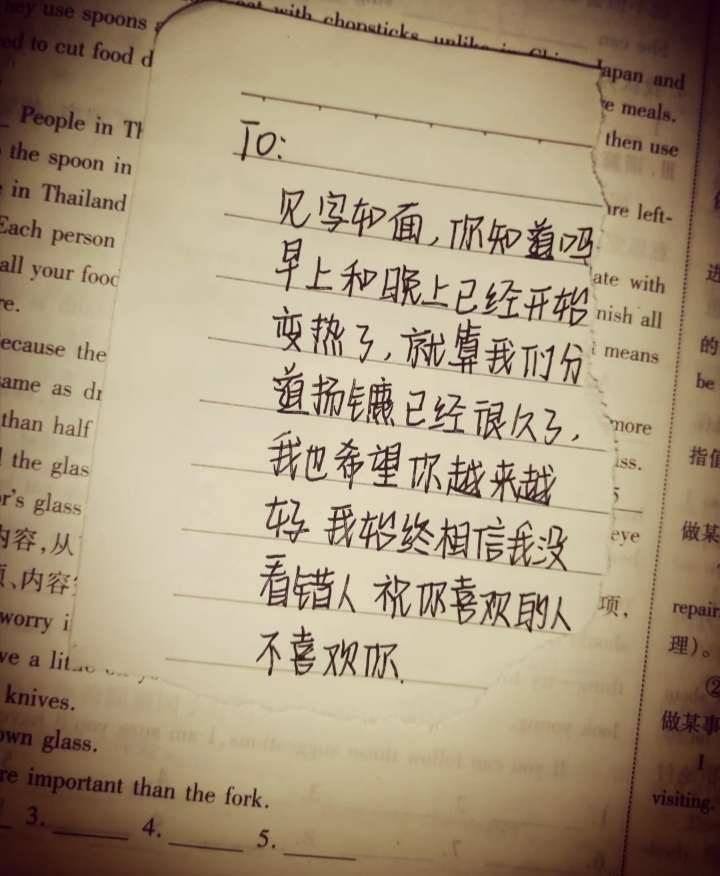 hey use spoons
eat with chopsticks, unlike in
Japan and
ed to cut food d
e meals.
People in Th
then use
the spoon in
in Thailand
are left-
Each person
all your food
ate with
re.
nish all
means
ecause the
ame as dr
than half
more
the glas
ss.
r's glass
5
eye
内容,从
、内容
项,
worry i
ve a lit
knives.
own glass.
re important than the fork.
3. 4. 5.
To:
见字如面,你知道吗
早上和晚上已经开始
变热了,就算我们分
道扬镳已经很久了,
我也希望你越来越
好 我始终相信我没
看错人 祝你喜欢的人
不喜欢你.
进
的
be
指值
做某
repair
理)。
②
做某事
I
visiting.